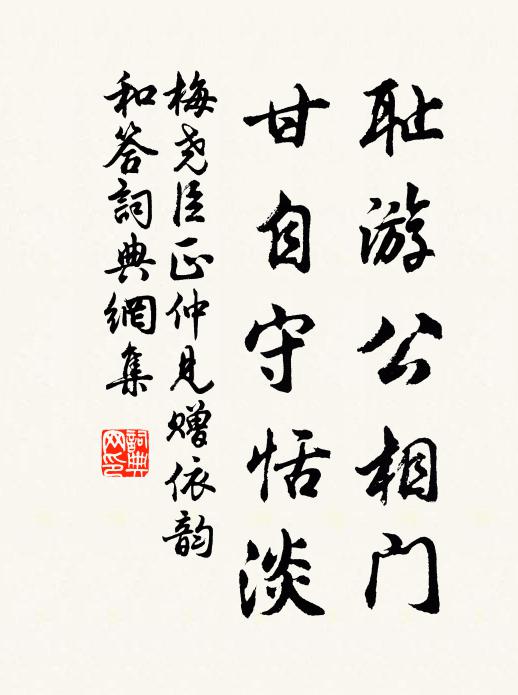 耻游公相门
甘自守恬淡
梅尧臣正仲见赠依韵
和答詞典網集
詞典
网印